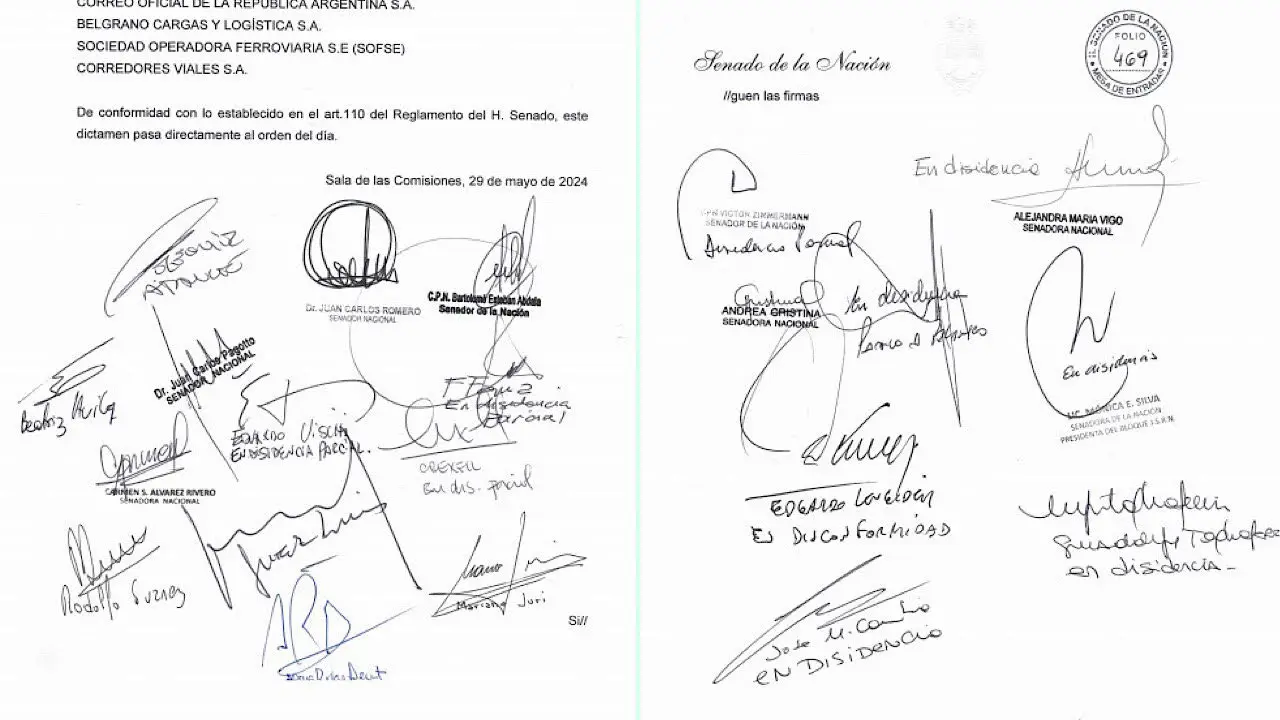 CORREO OFICIAL DE LA REPÚBLICA ARGENTINA S.A.
BELGRANO CARGAS Y LOGÍSTICA S.A.
SOCIEDAD OPERADORA FERROVIARIA S.E (SOFSE)
CORREDORES VIALES S.A.
De conformidad con lo establecido en el art.110 del Reglamento del H. Senado, este
dictamen pasa directamente al orden del día.
Sala de las Comisiones, 29 de mayo de 2024
Dr. JUAN CARLOS ROMERO
SENADOR NACIONAL
C.P.N. Bartolomé Esteban Abdala
Senador de la Nación
Dr. Juan Carlos Pagotto
SENADOR NACIONAL
Beatriz Avila
EN DISIDENCIA PARCIAL.
En disidencia
Parcial
CREXELL
En dis. parcial
CARMEN S. ALVAREZ RIVERO
SENADORA NACIONAL
Rodolfo Suarez
Mariana Juri
Si//
Senado de la Nación
//guen las firmas
H. SENADO DE LA NACIÓN
FOLIO
469
MESA DE ENTRADAS
En disidencia
ALEJANDRA MARIA VIGO
SENADORA NACIONAL
C.P.N VICTOR ZIMMERMANN
SENADOR DE LA NACIÓN
Disidencia Parcial
ANDREA CRISTINA
SENADORA NACIONAL
En disidencia
En disidencia
LIC. MÓNICA E. SILVA
SENADORA DE LA NACIÓN
PRESIDENTA DEL BLOQUE J.S.R.N.
EDGARDO
EN DISCONFORMIDAD
Guadalupe Tagliaferri
en disidencia
Jose M. Carambia
EN DISIDENCIA